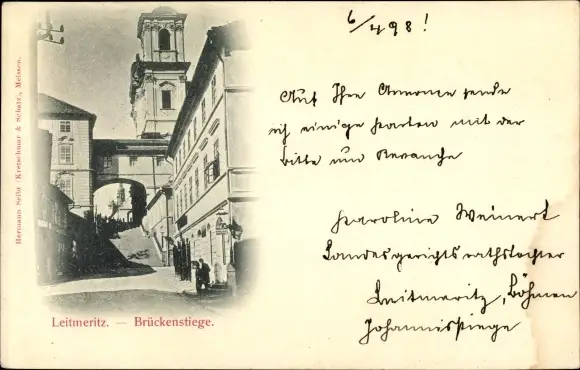 6/4 98!
Auf Ihre Annonce sende
ich einige Karten mit der
Bitte um Revanche
Karoline Weinert
Landesgerichtsrathstochter
Leitmeritz, Böhmen
Johannisstiege
Leitmeritz. — Brückenstiege.
Hermann Seibt (Kretzschmar & Schatz), Meissen.